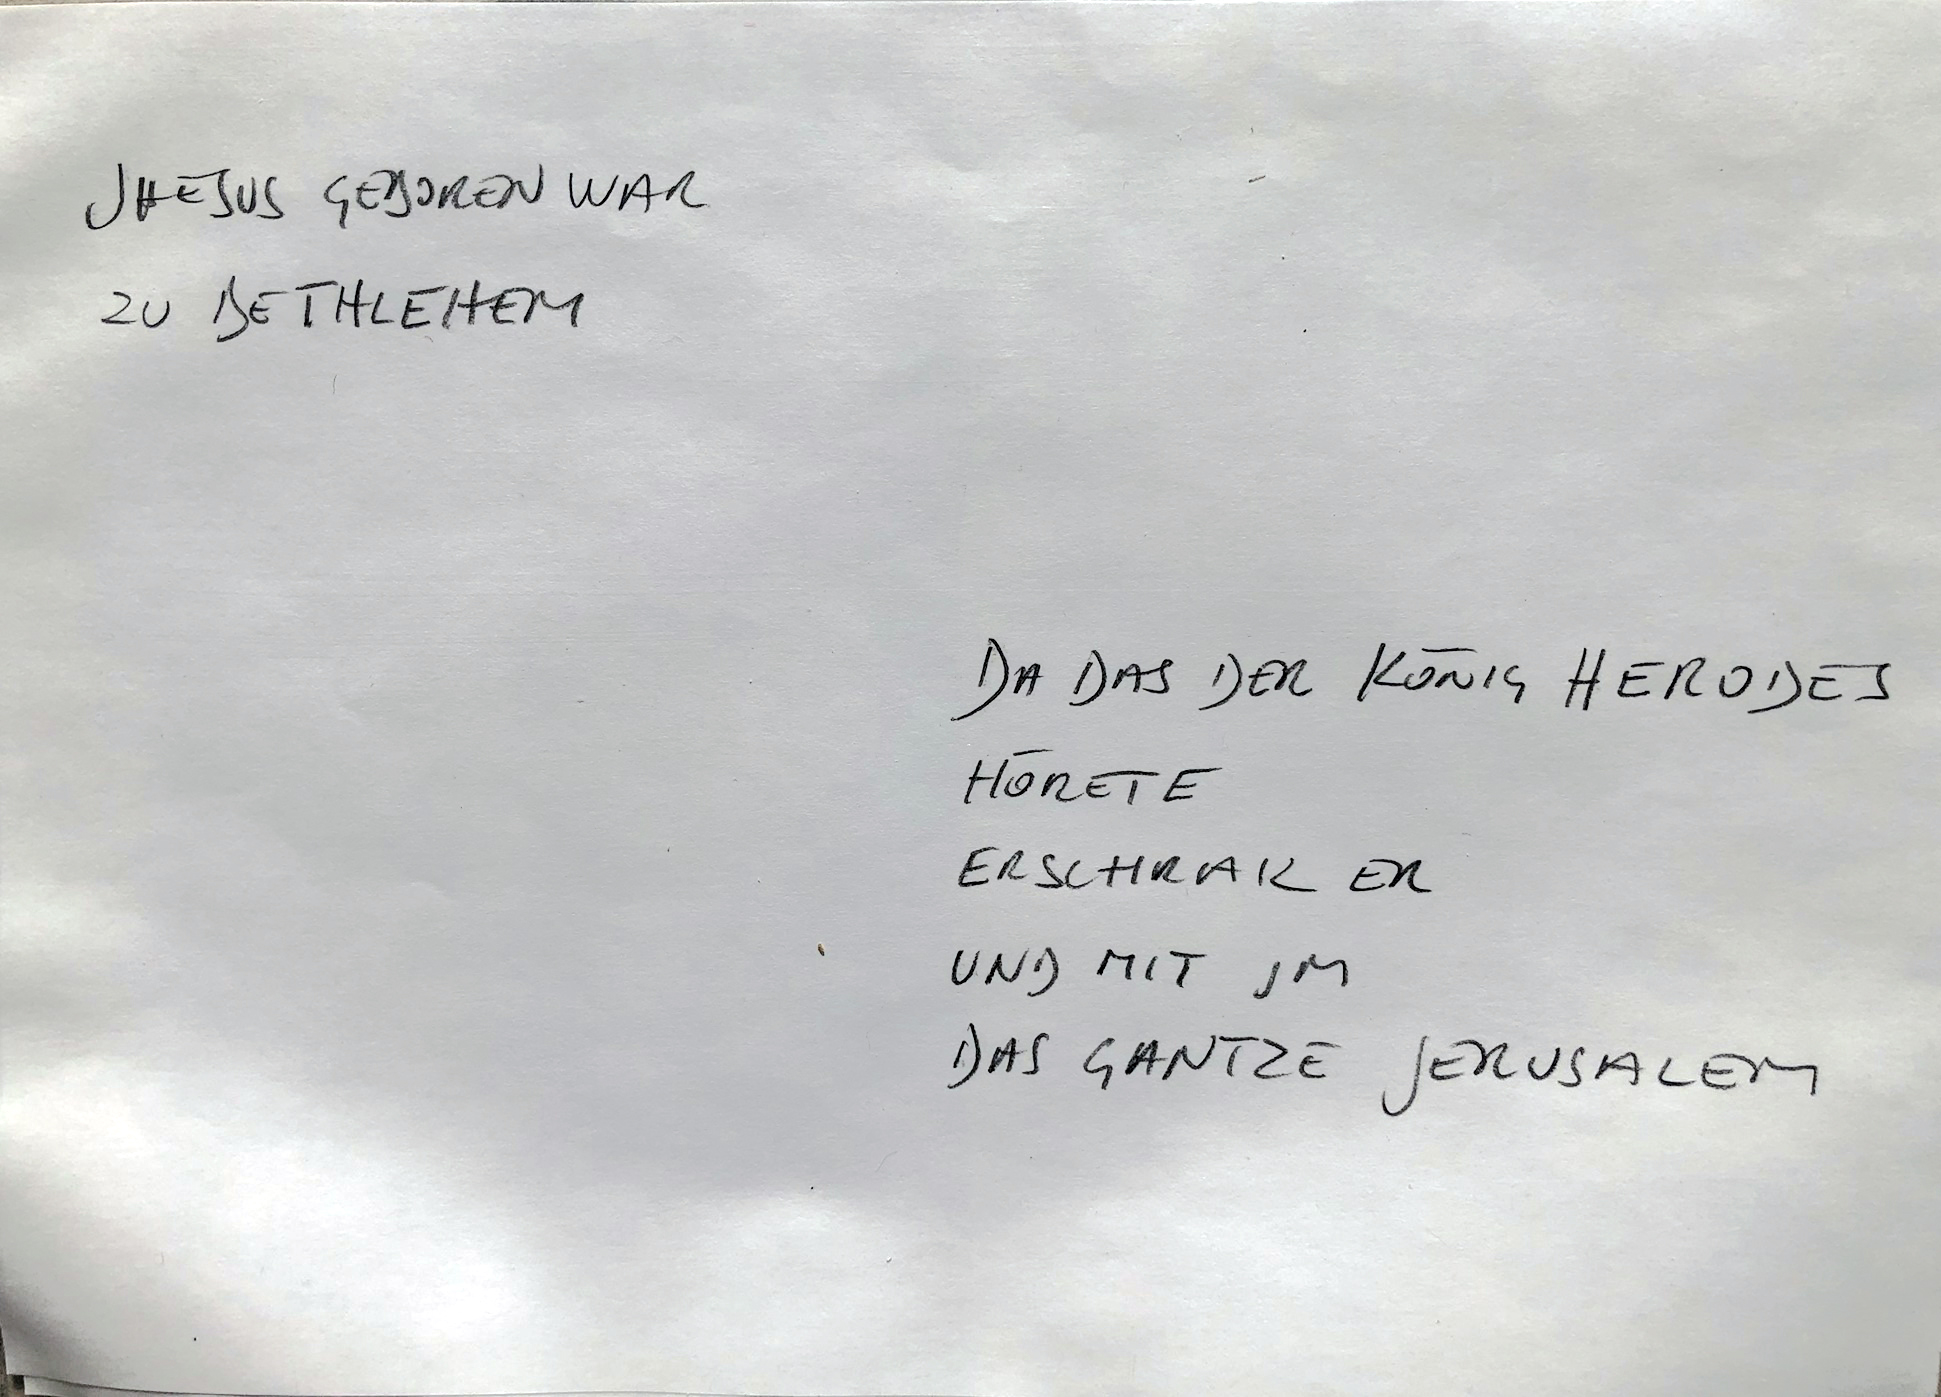 JHESUS GEBOREN WAR
ZU BETHLEHEM
DA DAS DER KÖNIG HERODES
HÖRETE
ERSCHRAK ER
UND MIT JM
DAS GANTZE JERUSALEM